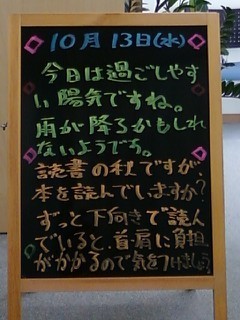 10月13日(水)
今日は過ごしやす
い陽気ですね。
雨が降るかもしれ
ないようです。
読書の秋ですが、
本を読んでいますか?
ずっと下向きで読ん
でいると、首肩に負担
がかかるので気をつけましょう